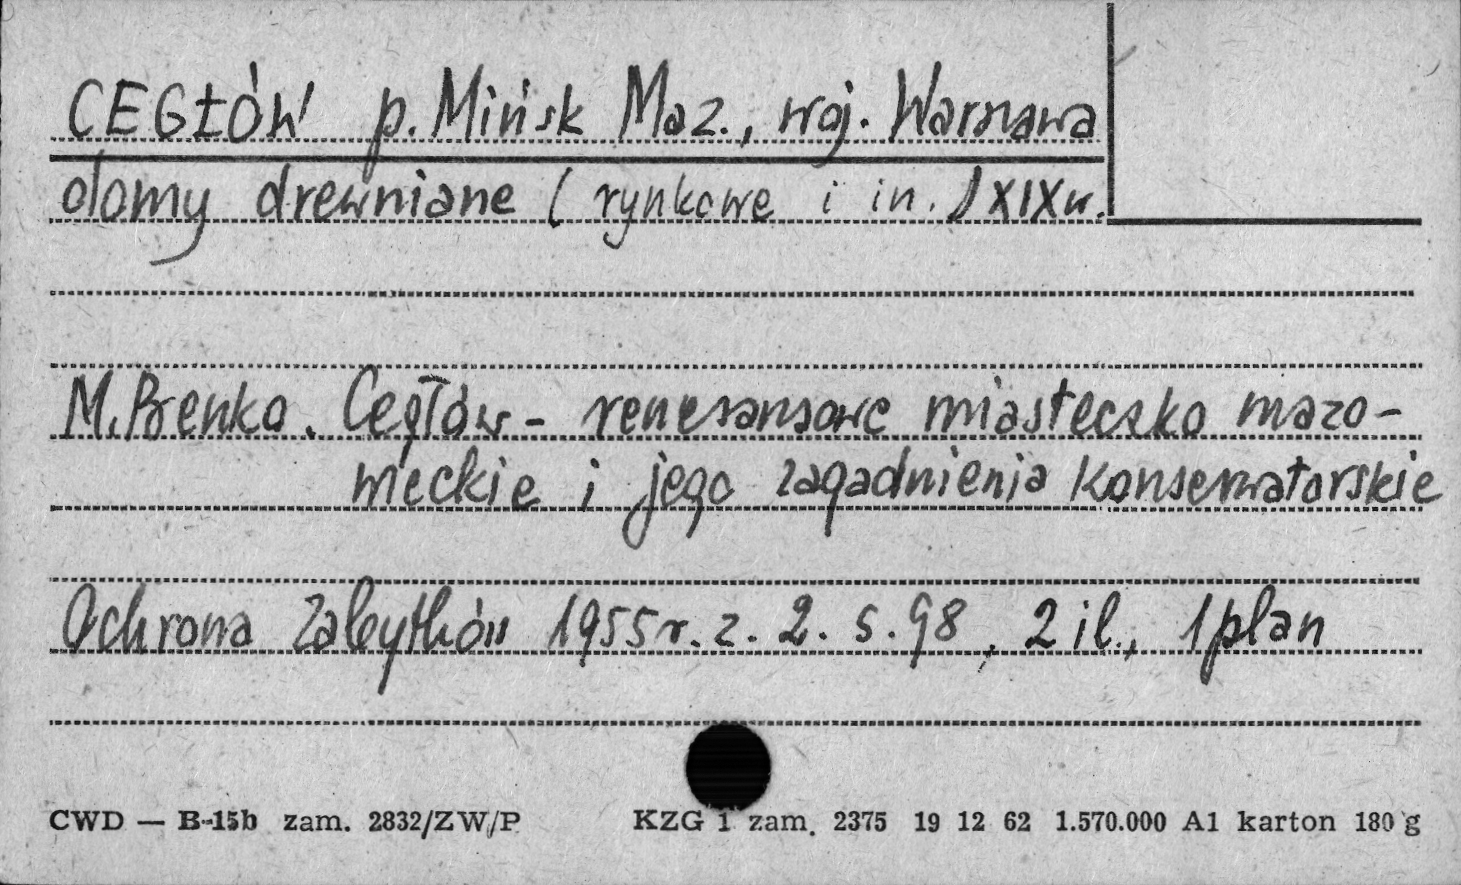 CEGŁÓW p. Mińsk Maz., woj. Warszawa
domy drewniane (rynkowe i in.) XIX w.
M. Benko. Cegłów - renesansowe miasteczko mazo-
wieckie i jego zagadnienia konserwatorskie
Ochrona Zabytków 1955 r. z. 2. s. 98, 2 il., 1 plan
CWD — B-15b zam. 2832/ZW/P KZG 1 zam. 2375 19 12 62 1.570.000 A1 karton 180 g